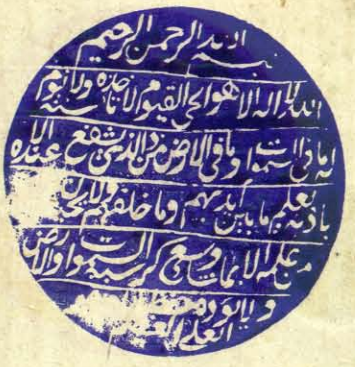 بسم الله الرحمن الرحيم
الله لا اله الا هو الحي القيوم لا تاخذه سنة ولا نوم
له ما في السموات وما في الارض من ذا الذي يشفع عنده الا
باذنه يعلم ما بين ايديهم وما خلفهم ولا يحيطون
من علمه الا بما وسع كرسيه السموات والارض
ولا يؤده حفظهما
العلي العظيم